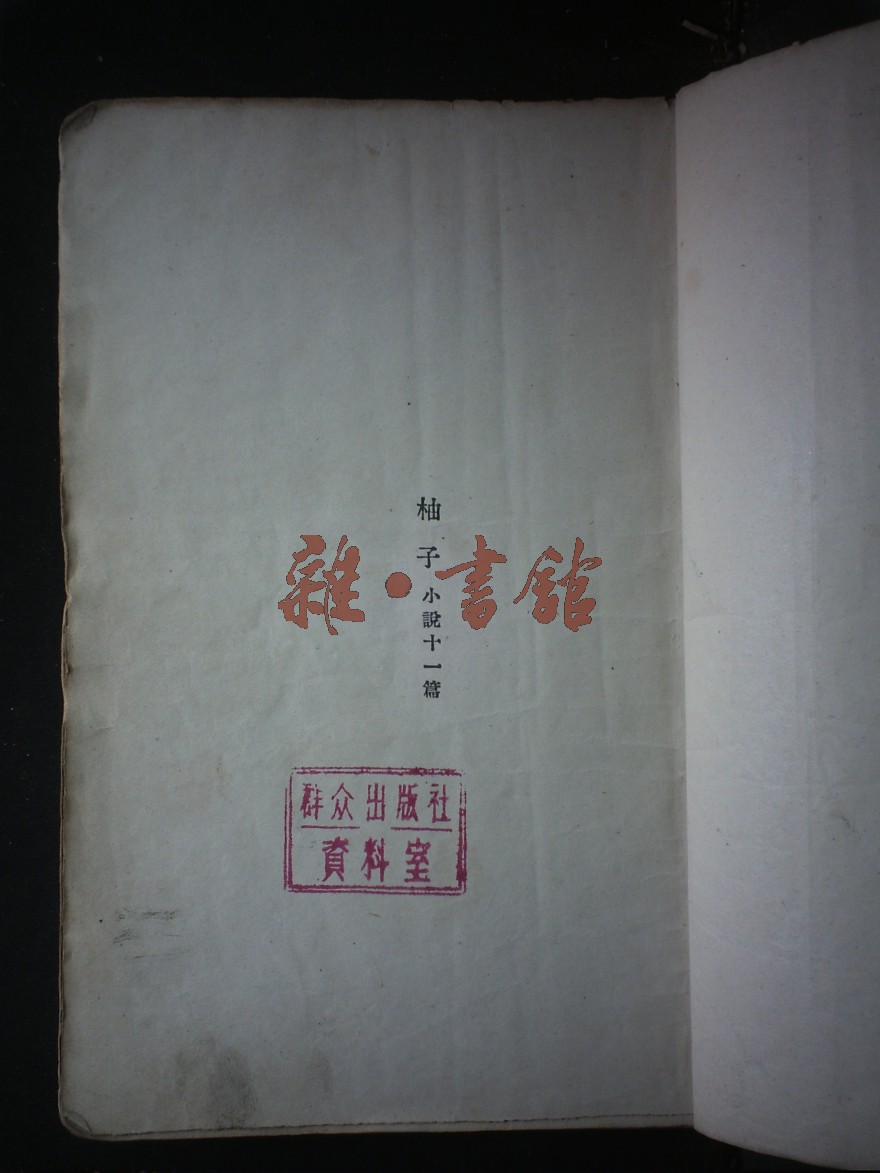 柚子 小說十一篇
雜·書館
群众出版社
資料室